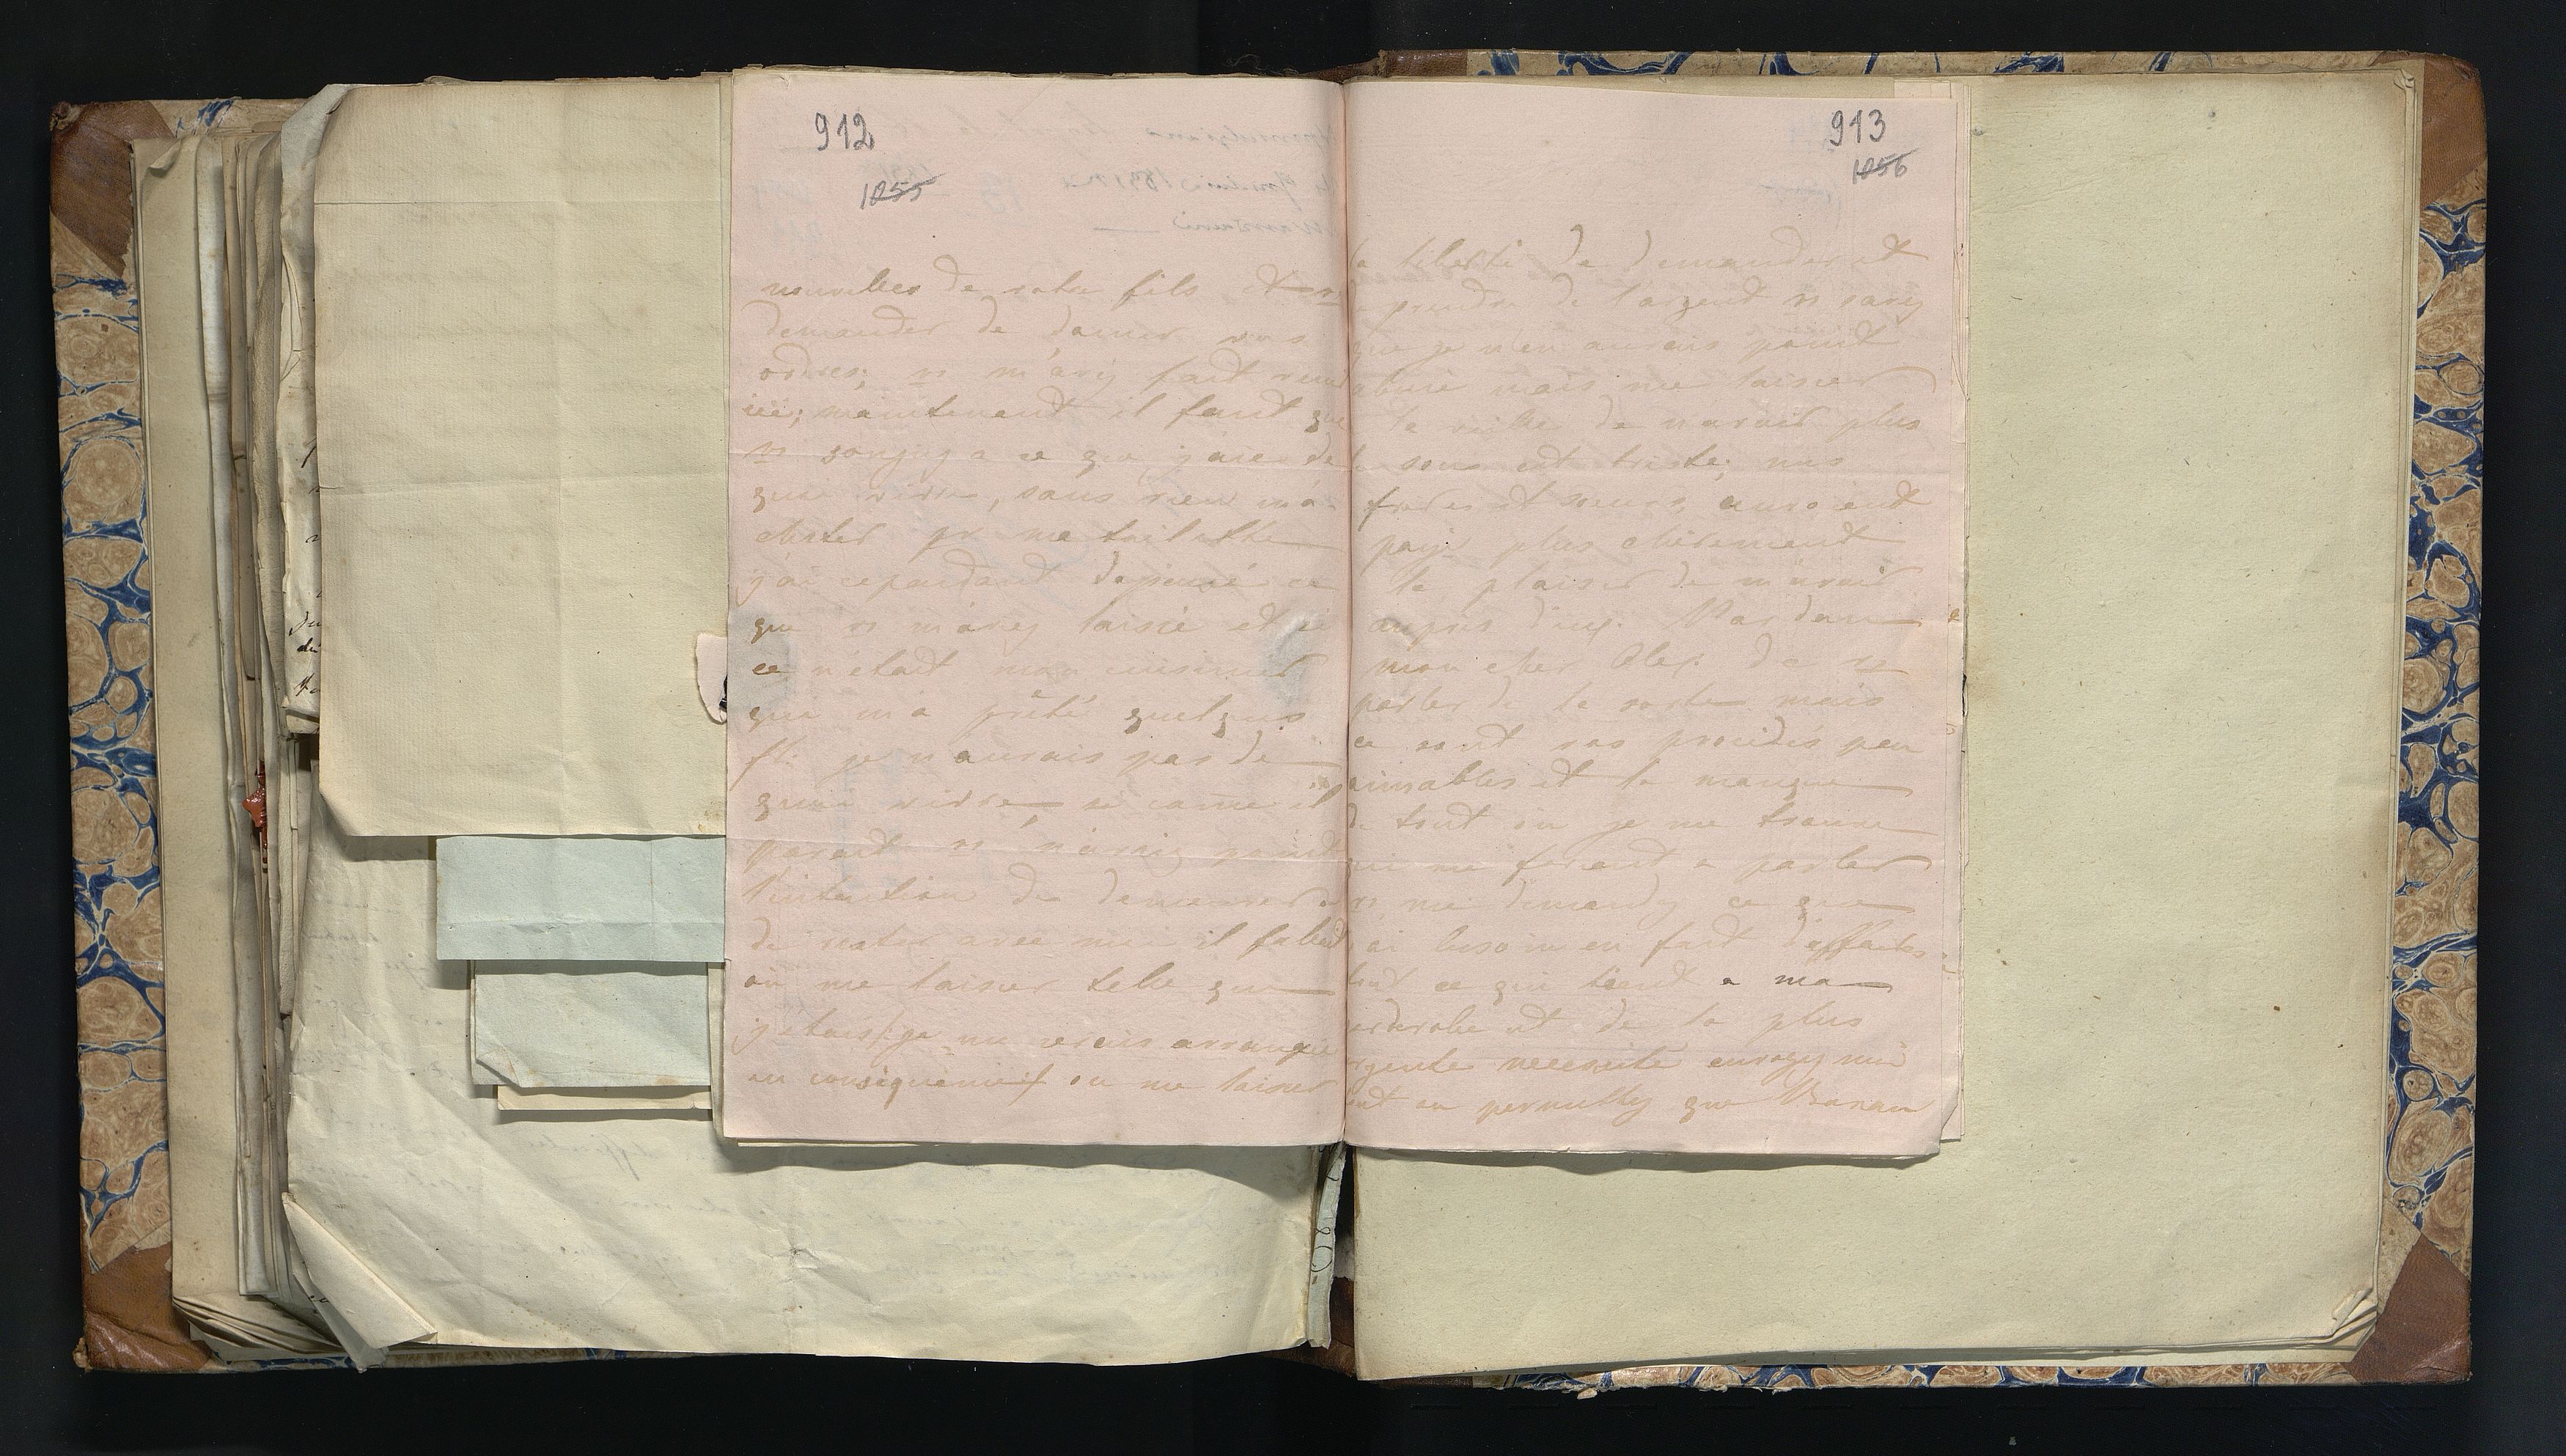 912
1055
nouvelles de votre fils et vs
demander de donner vos
ordres; vs m'avez fait venir
ici; maintenant il faut que
vs songiez a ce que j'aie de
quoi vivre, sans rien m'a-
cheter pr ma toilette
j'ai cependant depensé ce
que vs m'avez laissé et si
ce n'était mon cuisinier
qui m'a prêté quelques
fl. je n'aurais pas de
quoi vivre, si come il
parait vs n'aviez point
l'intention de demeurer
de rester avec moi il fallait
ou me laisser telle que
j'étais (je me serais arrangée
en conséquence) ou me laisser
913
1056
la liberté de demander et
de prendre de l'argent vs savez
que je n'en aurais point
abusé mais me laisser
la veille de n'avoir plus
le sous est triste; mes
freres et soeurs auroient
payé plus chèrement
le plaisir de m'avoir
aupres d'eux. Pardon
mon cher Alex. de vs
parler de la sorte mais
ce sont vos procédés peu
aimables et le manque
de tout où je me trouve
qui me forcent a parler
vs me demandez ce que
j'ai besoin en fait d'effaits
tout ce qui tient a ma
garderobe est de la plus
urgente necessité envoyez moi
ou permettez que